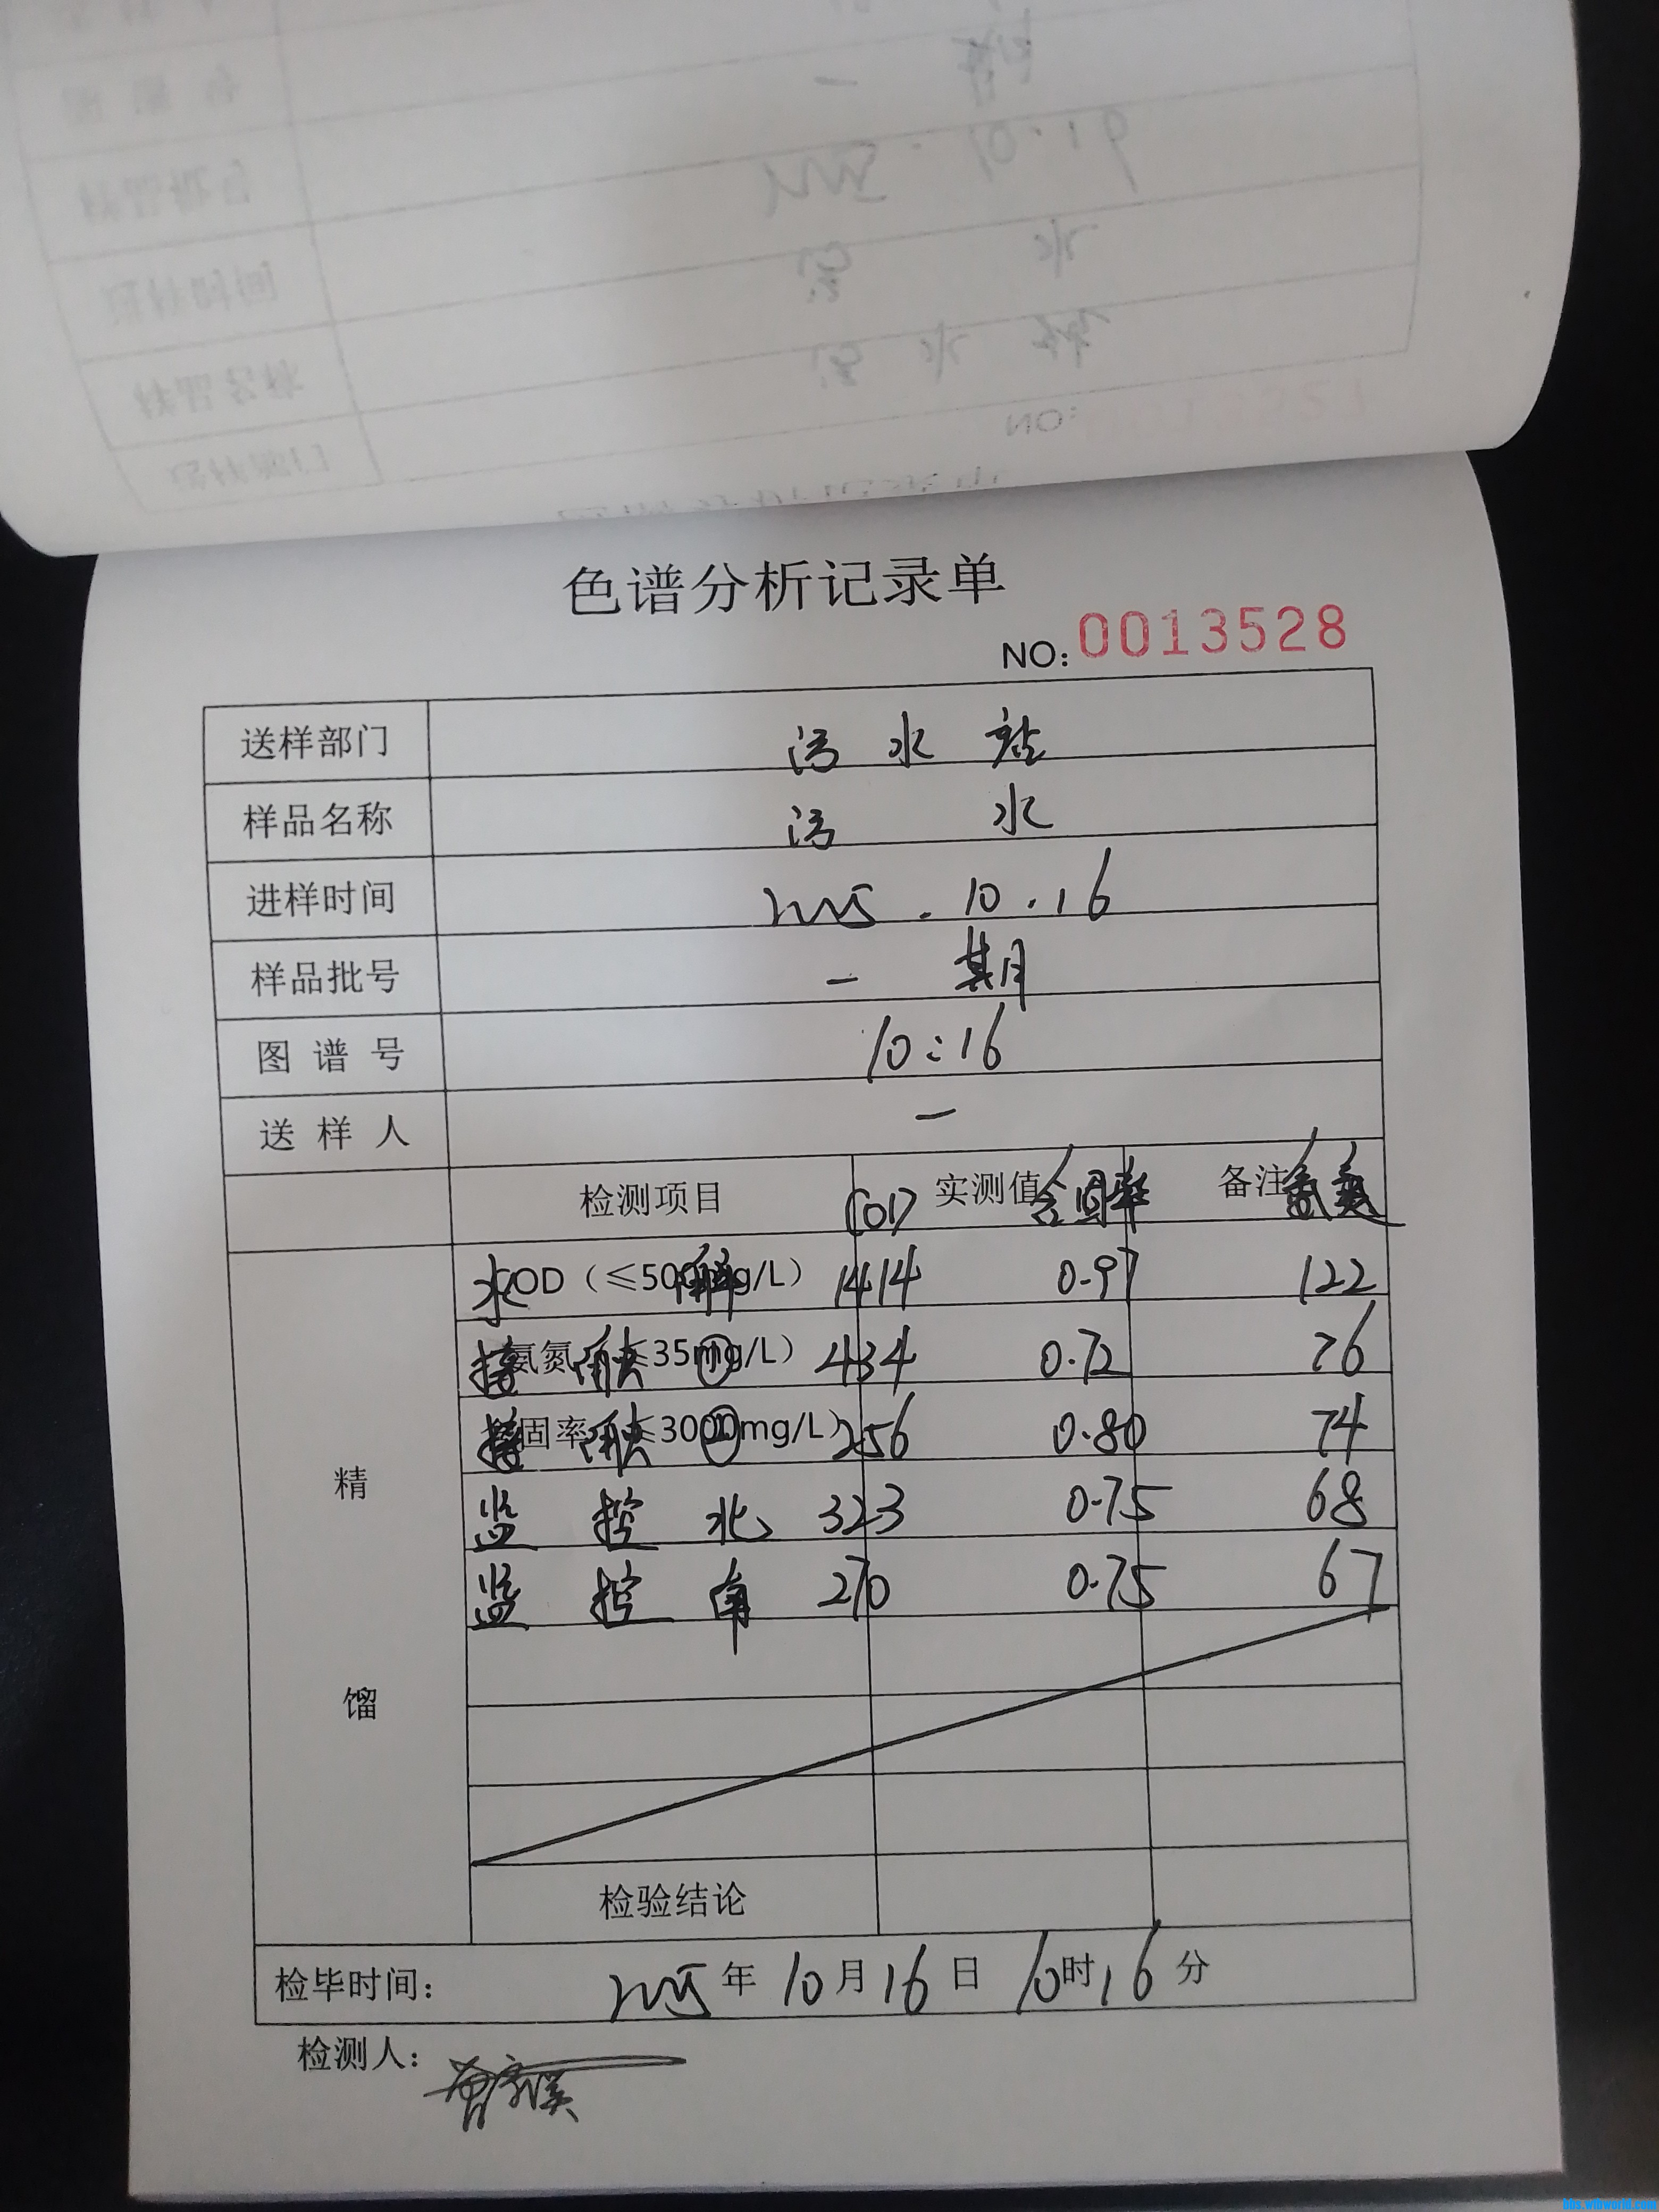 色谱分析记录单
NO: 0013528
送样部门 污水站
样品名称 污水
进样时间 2025.10.16
样品批号 一期
图谱号 10:16
送样人 一
检测项目 COD 实测值 含固率 备注 氨氮
精馏
COD（≤500mg/L） 水解 1414 0.97 122
氨氮（≤35mg/L） 接触① 434 0.72 76
含固率（≤3000mg/L） 接触② 256 0.80 74
监控北 323 0.75 68
监控南 270 0.75 67
检验结论
检毕时间： 2025年10月16日10时16分
检测人：
bbs.wihworld.com